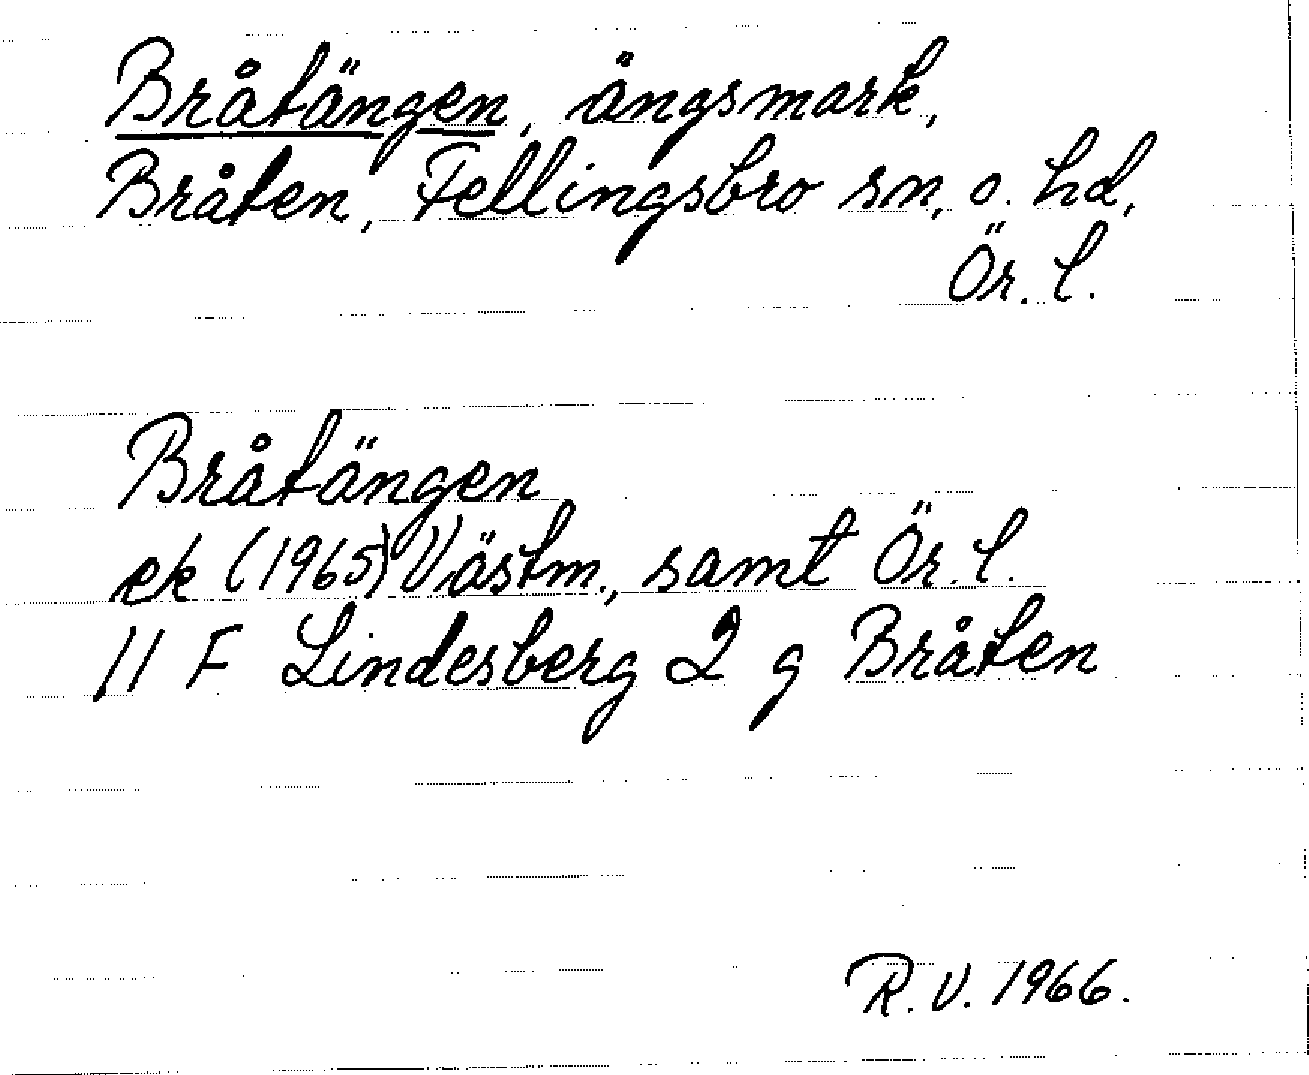 Bråtängen, ängsmark,
Bråten, Fellingsbro sn. o. hd,
Ör. l.
Bråtängen
ek (1965) Västm., samt Ör. l.
11 F Lindesberg 2 g Bråten
R.V. 1966.